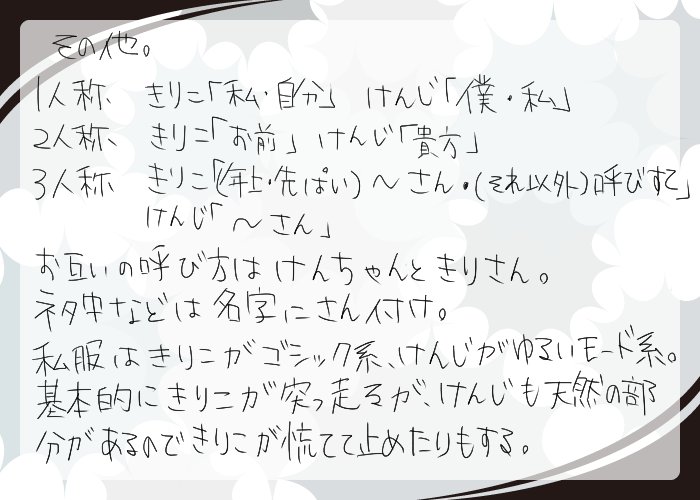 その他。
1人称、 きりこ「私・自分」 けんじ「僕・私」
2人称、 きりこ「お前」 けんじ「貴方」
3人称、 きりこ「(年上・先ぱい) 〜さん・(それ以外)呼びすて」
けんじ「〜さん」
お互いの呼び方はけんちゃんときりさん。
ネタ中などは名字にさん付け。
私服はきりこがゴシック系、けんじがゆるいモード系。
基本的にきりこが突っ走るが、けんじも天然の部
分があるのできりこが慌てて止めたりもする。